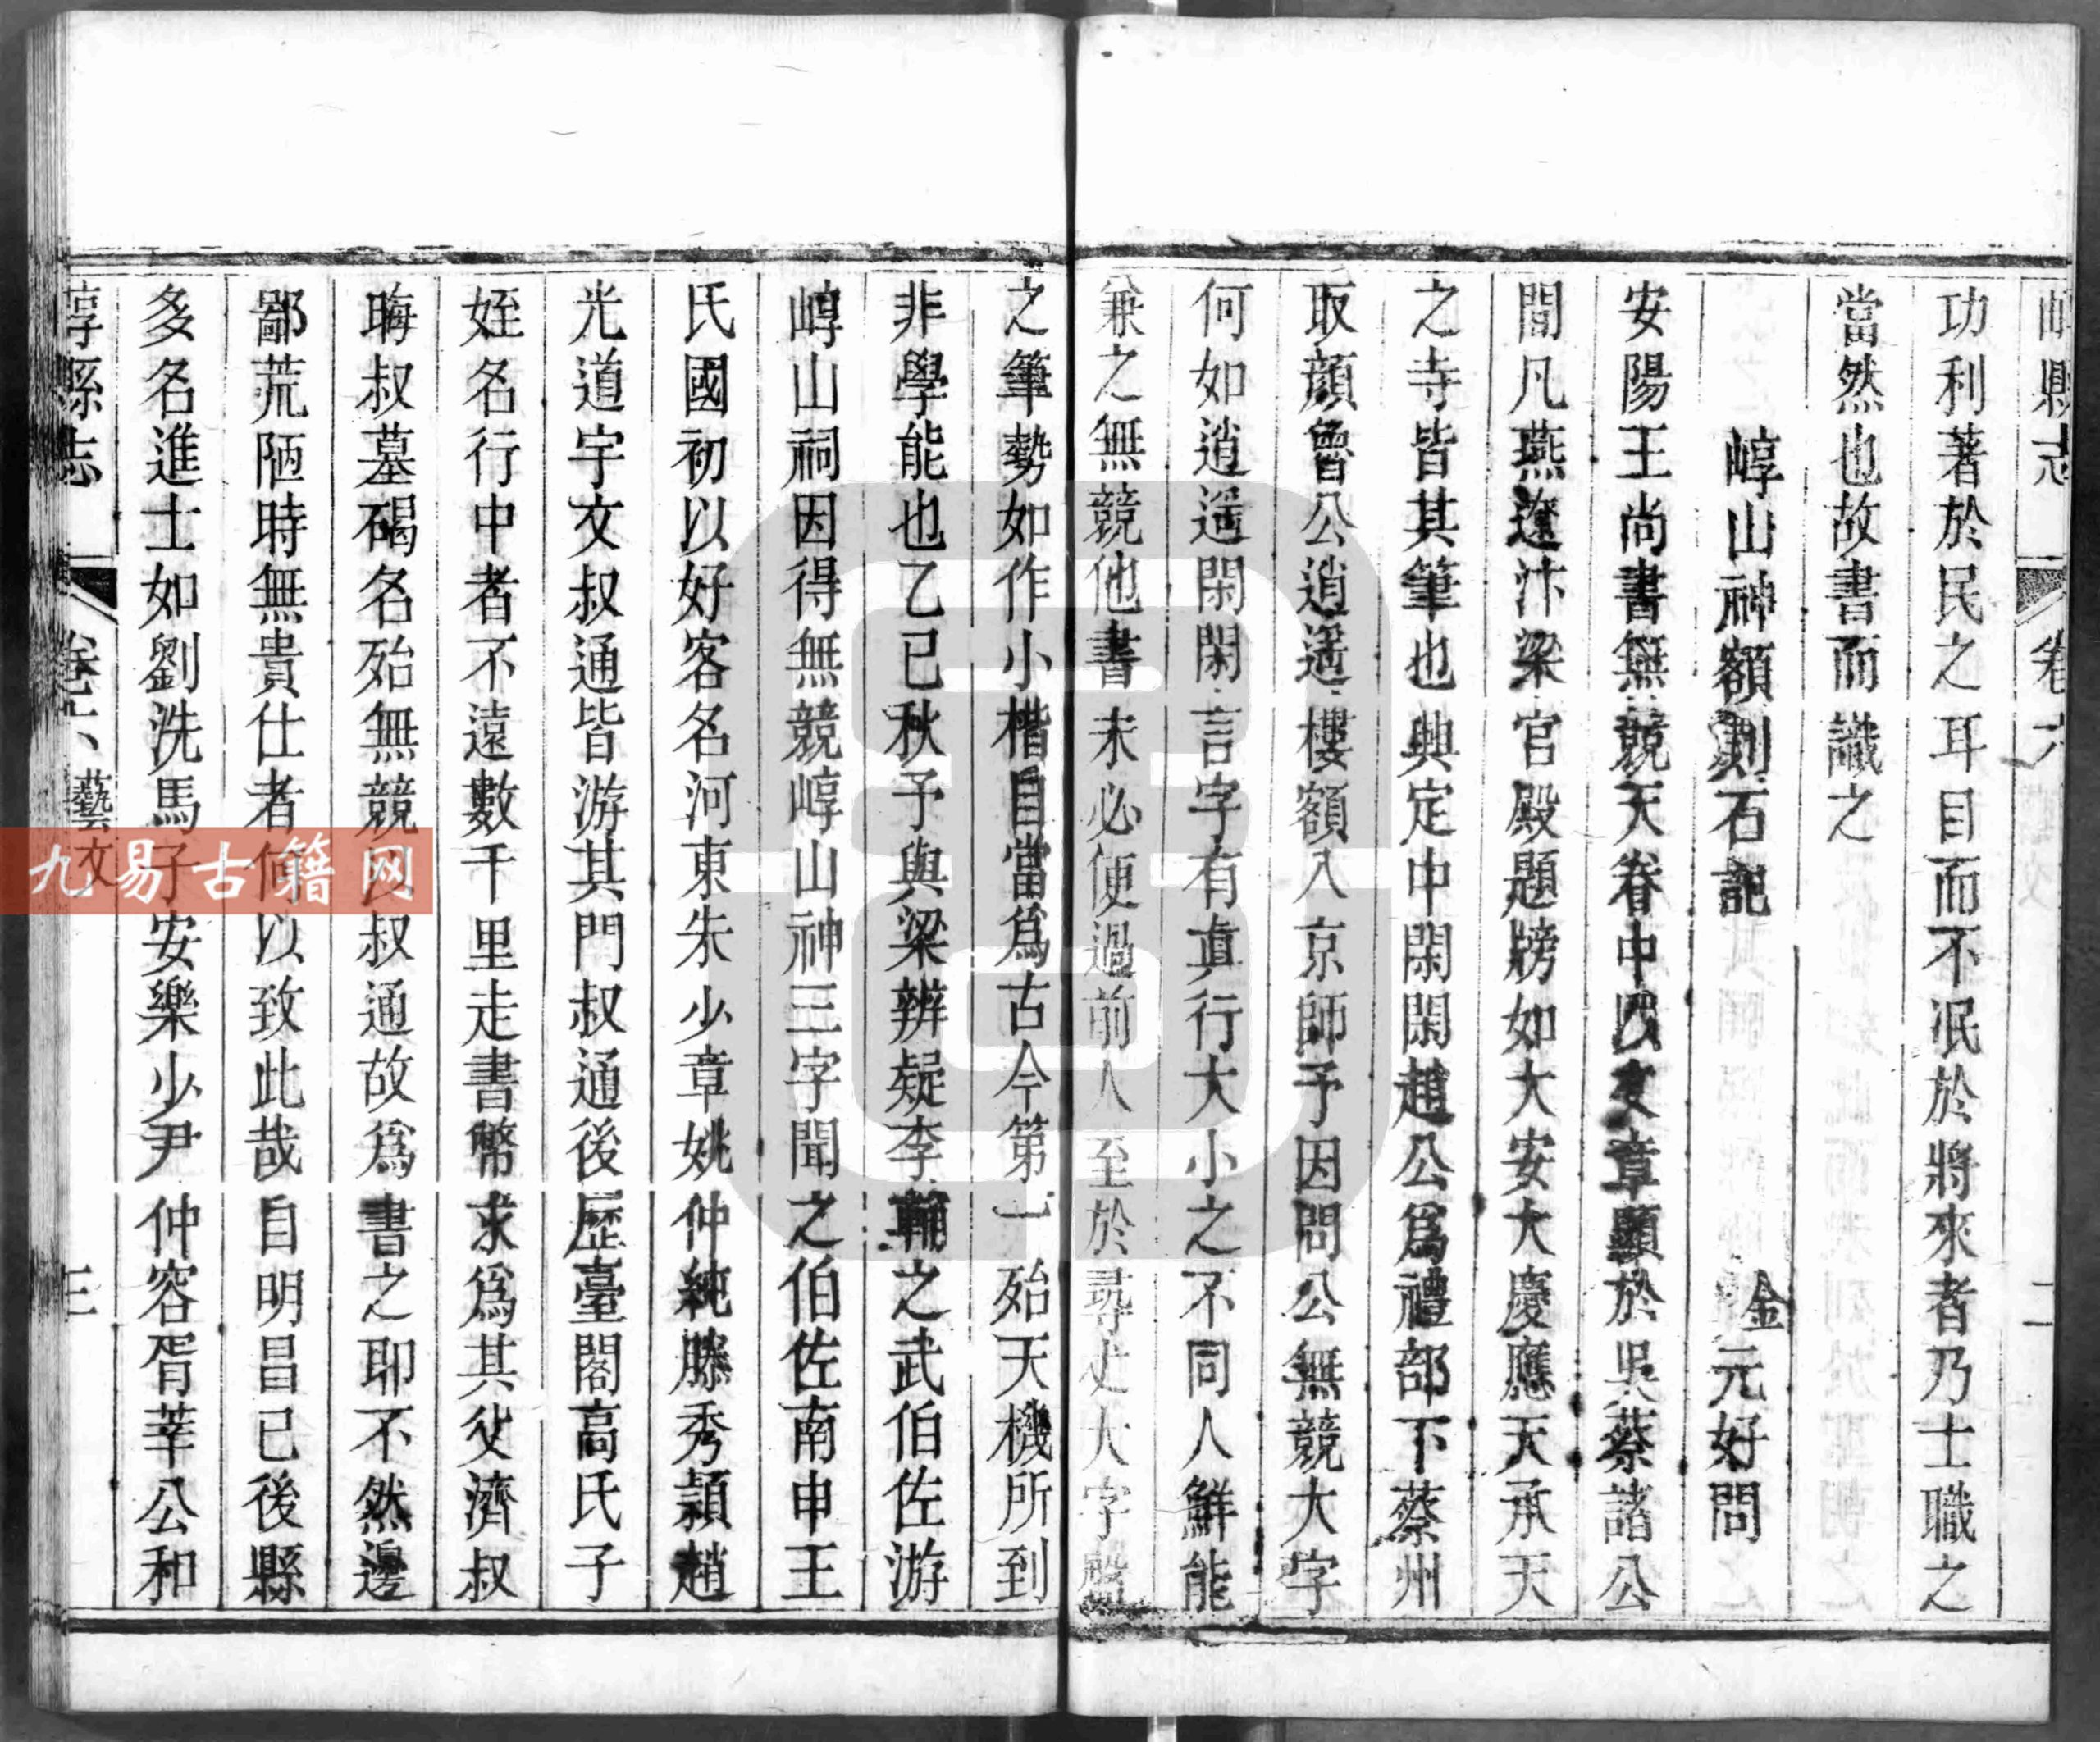 功利著於民之耳目而不泯於將來者乃士職之
當然也故書而識之
崞山神額刻石記
金元好問
安陽王尚書無競天眷中以文章顯於吳蔡諸公
間凡燕遼汴梁官殿題牓如大安大慶應天承天
之寺皆其筆也興定中閑閑趙公為禮部下蔡州
取顏魯公逍遥樓額入京師予因問公無競大字
何如逍遥閑閑言字有真行大小之不同人鮮能
兼之無競他書未必便過前人至於尋丈大字盤
之筆勢如作小楷自當為古今第一殆天機所到
非學能也乙巳秋予與梁辨疑李輔之武伯佐游
崞山祠因得無競崞山神三字聞之伯佐南申王
氏國初以好客名河東朱少章姚仲純滕秀頴趙
光道宇文叔通皆游其門叔通後歷臺閣高氏子
姪名行中者不遠數千里走書幣求為其父濟叔
晦叔墓碣名殆無競因叔通故為書之耶不然邊
鄙荒陋時無貴仕者何以致此哉自明昌已後縣
多名進士如劉洗馬子安樂少尹仲容胥莘公和
崞縣志
卷六
藝文
三
縣志
卷六
二
九易古籍网